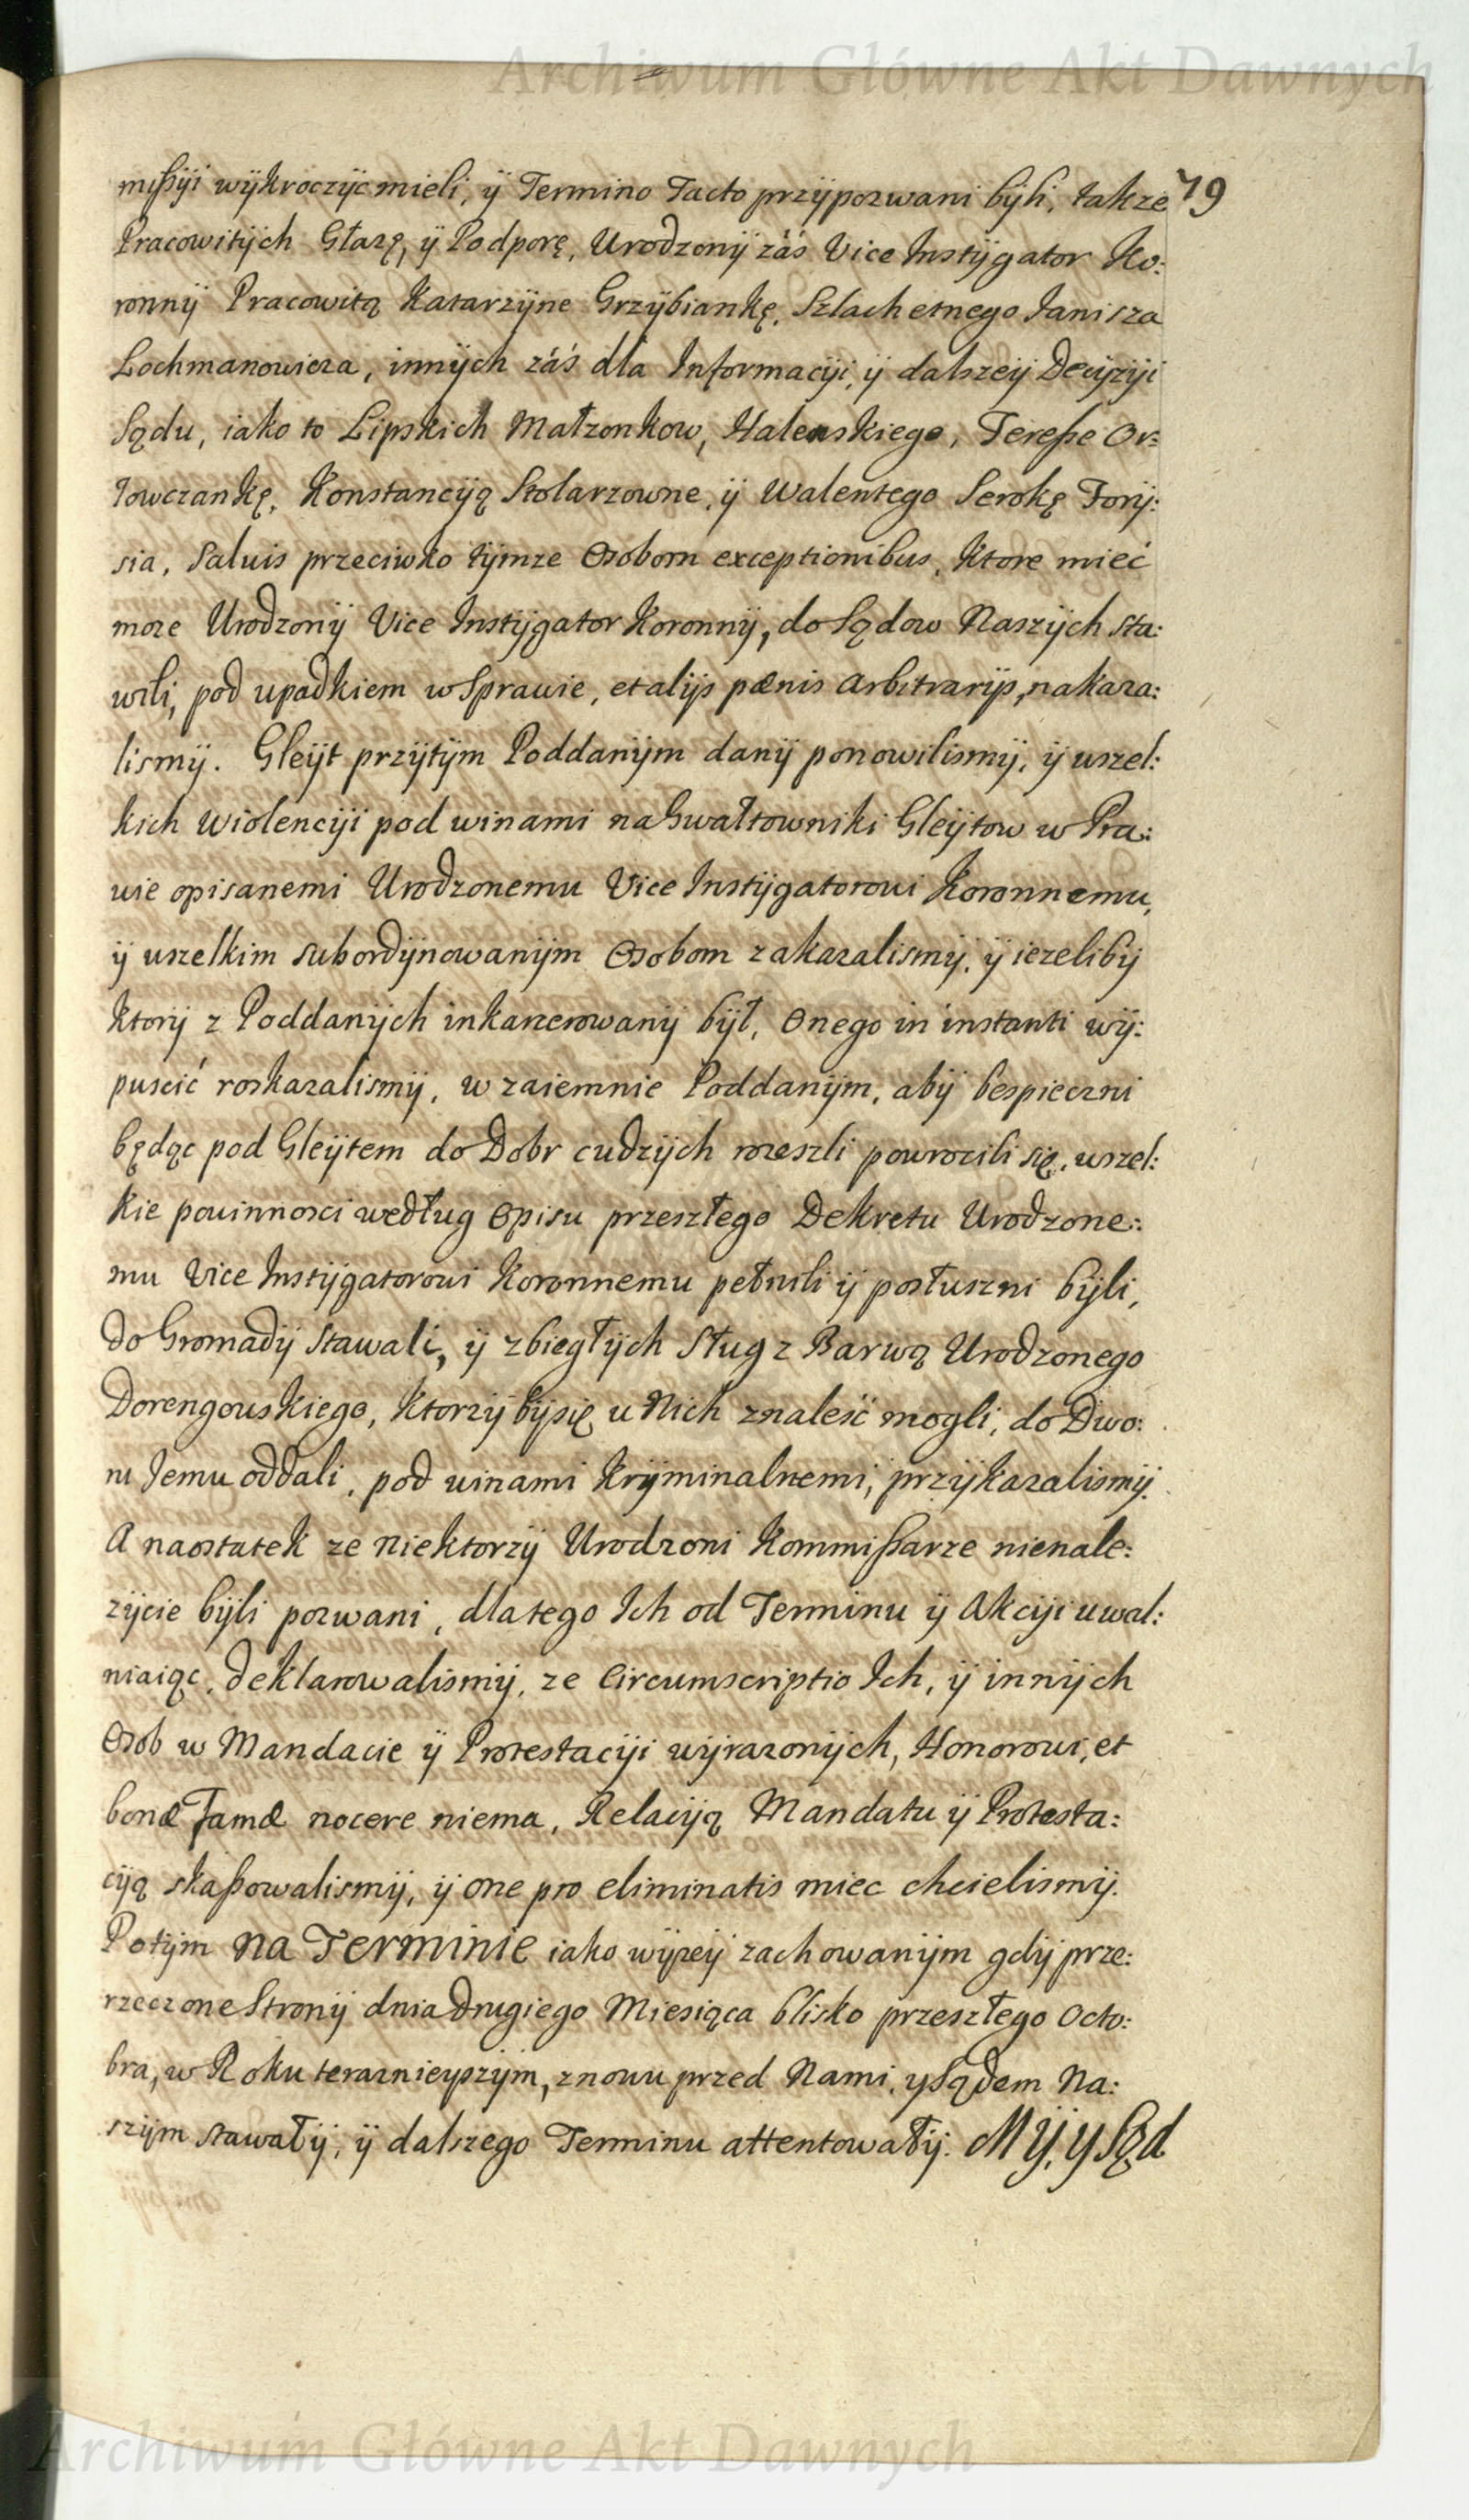 Archiwum Główne Akt Dawnych
mißÿi wÿkroczÿc mieli, ÿ Termino Tacto przÿpozwani bÿli, takze 79
Pracowitÿch Głazę, ÿ Podporę, Urodzonÿ záś Vice Instÿgator Ko:
ronnÿ Pracowitą Katarzÿne Grzÿbiankę, Szlachetnego Janisza
Lochmanowicza, innÿch záś dla Informacÿi, ÿ dalszeÿ Decÿzÿi
Sądu, iako to Lipskich Małzonkow, Halenskiego, Tereße Or:
łowczankę, Konstancÿą Stolarzowne, ÿ Walentego Serokę Forÿ:
sia, Saluis przeciwko tÿmze Osobom exceptionibus, Ktore mieć
moze Urodzonÿ Vice Instÿgator Koronnÿ, do Sądow Naszÿch sta:
wili, pod upadkiem w Sprawie, et alÿs pænis arbitrarÿs, nakaza:
lismÿ. Gleÿt przÿtÿm Poddanÿm danÿ ponowilismÿ, ÿ wszel:
kich wiolencÿi pod winami na Gwałtowniki Gleÿtow w Pra:
wie opisanemi Urodzonemu Vice Instÿgatorowi Koronnemu,
ÿ wszelkim subordÿnowanÿm Osobom zakazalismÿ, ÿ iezelibÿ
ktorÿ z Poddanÿch inkarcerowanÿ bÿł, onego in instanti wÿ:
puscić roskazalismÿ, wzaiemnie Poddanÿm, abÿ bespieczni
będąc pod Gleÿtem do Dobr cudzÿch rozeszli powrocili się, wszel:
kie powinnosci według Opisu przeszłego Dekretu Urodzone:
mu Vice Instÿgatorowi Koronnemu pełnili ÿ posłuszni bÿli,
do Gromadÿ stawali, ÿ zbiegłÿch Sług z Barwą Urodzonego
Dorengowskiego, Ktorzÿ bÿ się u Nich znaleść mogli, do Dwo:
ru Jemu oddali, pod winami Krÿminalnemi, przÿkazalismÿ.
A naostatek ze Niektorzÿ Urodzoni Kommißarze nienale:
zÿcie bÿli pozwani, dlatego Ich od Terminu ÿ Akcÿi uwal:
niaiąc, deklarowalismÿ, ze Circumscriptio Ich, ÿ innÿch
Osob w Mandacie ÿ Protestacÿi wÿrazonÿch, Honorowi, et
bonæ Famæ nocere niema, Relacÿą Mandatu ÿ Protesta:
cÿą skaßowalismÿ, ÿ one pro eliminatis miec chcielismÿ.
Potÿm na Terminie iako wÿzeÿ zachowanÿm gdÿ prze:
rzeczone Stronÿ dnia Drugiego Miesiąca blisko przeszłego Octo:
bra, w Roku teraznieyszÿm, znowu przed Nami, y Sądem Na:
szÿm stawałÿ, ÿ dalszego Terminu attentowałÿ. MŸ, y Sąd
Archiwum Główne Akt Dawnych